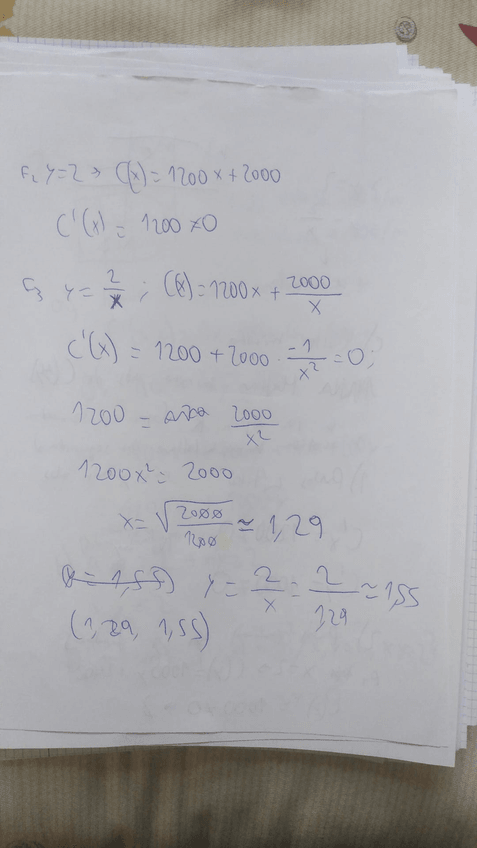 F₂ y=2 → C(x)=1200x+2000
C'(x) = 1200 ≠0
F₃ y = 2/x ; C(x)=1200x + 2000/x
C'(x) = 1200 + 2000 · -1/x² = 0;
1200 = 2000/x²
1200x² = 2000
x = √(2000/1200) ≃ 1,29
(x = 1,55) y = 2/x = 2/1,29 ≃ 1,55
(1,29, 1,55)